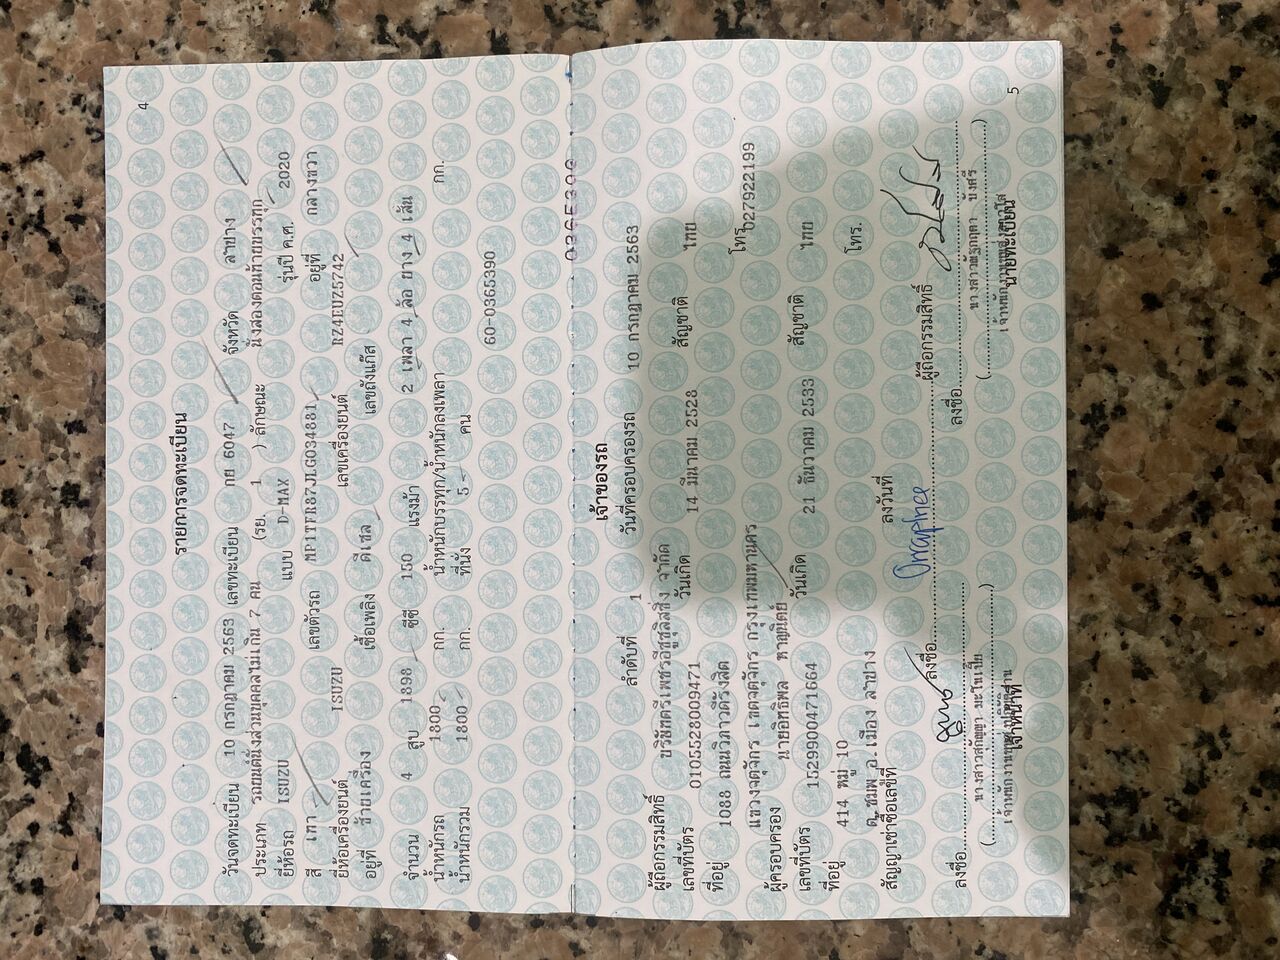 4
รายการจดทะเบียน
วันจดทะเบียน 10 กรกฎาคม 2563 เลขทะเบียน กย 6047 จังหวัด ลำปาง
ประเภท รถยนต์นั่งส่วนบุคคลไม่เกิน 7 คน (รย. 1 ) ลักษณะ นั่งสองตอนท้ายบรรทุก
ยี่ห้อรถ ISUZU แบบ D-MAX รุ่นปี ค.ศ. 2020
สี เทา เลขตัวรถ MP1TFR87JLG034881 อยู่ที่ กลางขวา
ยี่ห้อเครื่องยนต์ ISUZU เลขเครื่องยนต์ RZ4EUZ5742
อยู่ที่ ซ้ายเครื่อง เชื้อเพลิง ดีเซล เลขถังแก๊ส
จำนวน 4 สูบ 1898 ซีซี 150 แรงม้า 2 เพลา 4 ล้อ ยาง 4 เส้น
น้ำหนักรถ 1800 กก. น้ำหนักบรรทุก/น้ำหนักลงเพลา กก.
น้ำหนักรวม 1800 กก. ที่นั่ง 5 คน
60-0365390
เจ้าของรถ
ลำดับที่ 1 วันที่ครอบครองรถ 10 กรกฎาคม 2563
ผู้ถือกรรมสิทธิ์ บริษัทตรีเพชรอีซูซุลิสซิ่ง จำกัด
เลขที่บัตร 0105528009471 วันเกิด 14 มีนาคม 2528 สัญชาติ ไทย
ที่อยู่ 1088 ถนนวิภาวดีรังสิต
แขวงจตุจักร เขตจตุจักร กรุงเทพมหานคร โทร. 027922199
ผู้ครอบครอง นายอิทธิพล หาญนิตย์
เลขที่บัตร 1529900471664 วันเกิด 21 ธันวาคม 2533 สัญชาติ ไทย
ที่อยู่ 414 หมู่ 10
ต.ชมพู อ.เมือง ลำปาง โทร.
สัญญาเช่าซื้อเลขที่ ลงวันที่
ลงชื่อ Orraphee ผู้ถือกรรมสิทธิ์
ลงชื่อ ลงชื่อ
เจ้าหน้าที่ นายทะเบียน
5